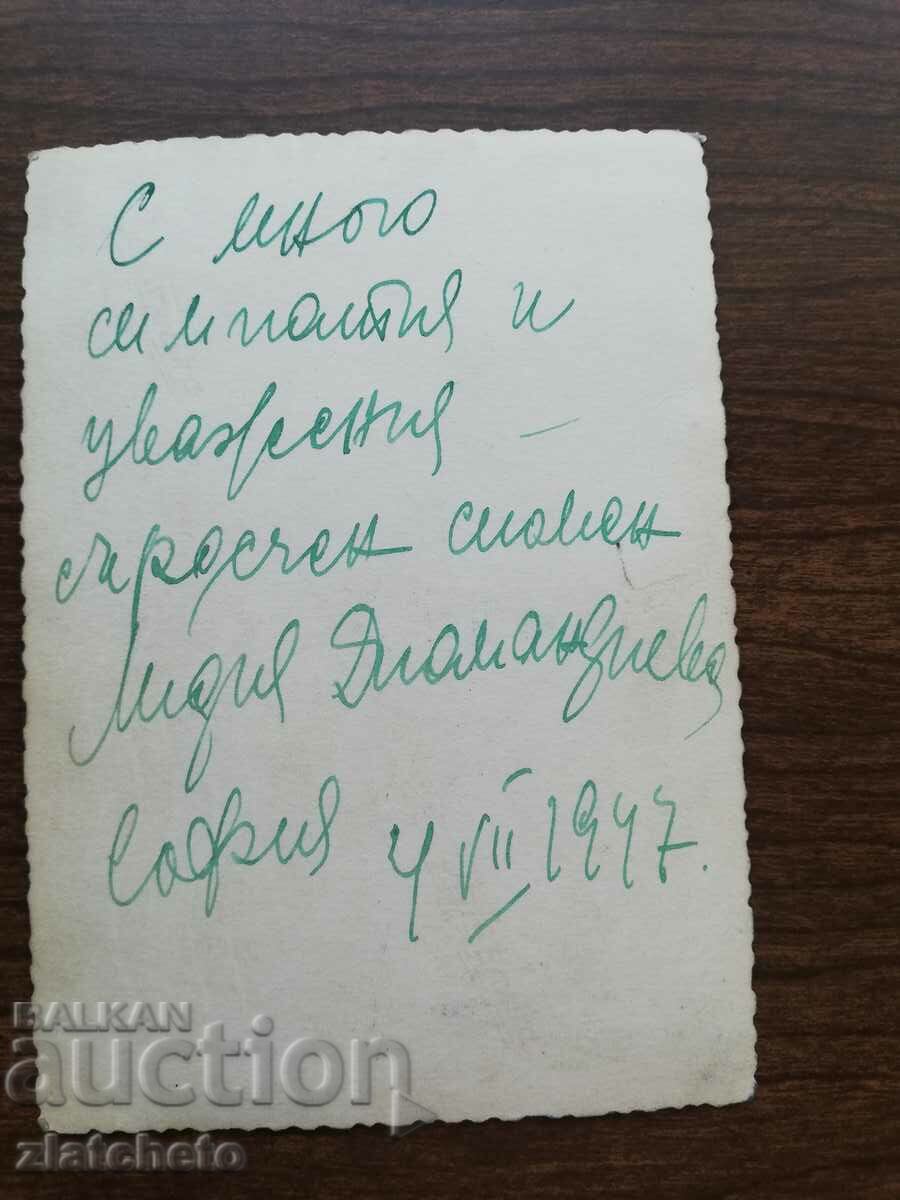 С много
симпатия и
уважения –
сърдечен спомен
Лидия Диамандиева
София 4 VII 1947.
BALKAN
auction
zlatcheto